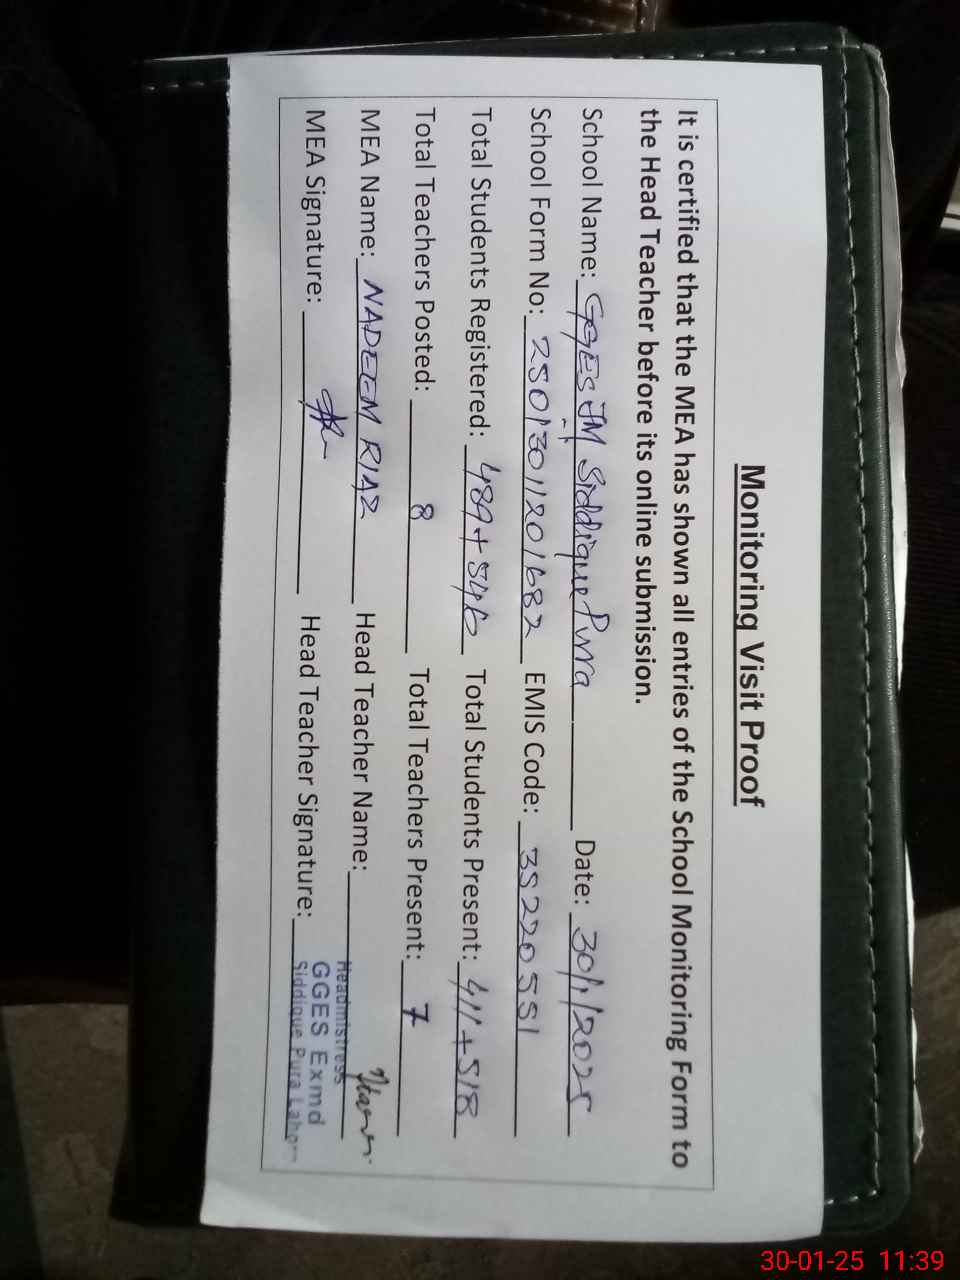 Monitoring Visit Proof
It is certified that the MEA has shown all entries of the School Monitoring Form to
the Head Teacher before its online submission.
School Name: GGES JM Siddique Purra Date: 30/1/2025
School Form No: 25013011201682 EMIS Code: 35220551
Total Students Registered: 489+546 Total Students Present: 411+518
Total Teachers Posted: 8 Total Teachers Present: 7
MEA Name: NADEEM RIAZ Head Teacher Name:
MEA Signature: Head Teacher Signature:
Headmistress
GGES Exmd
Siddique Pura Lahore
30-01-25 11:39